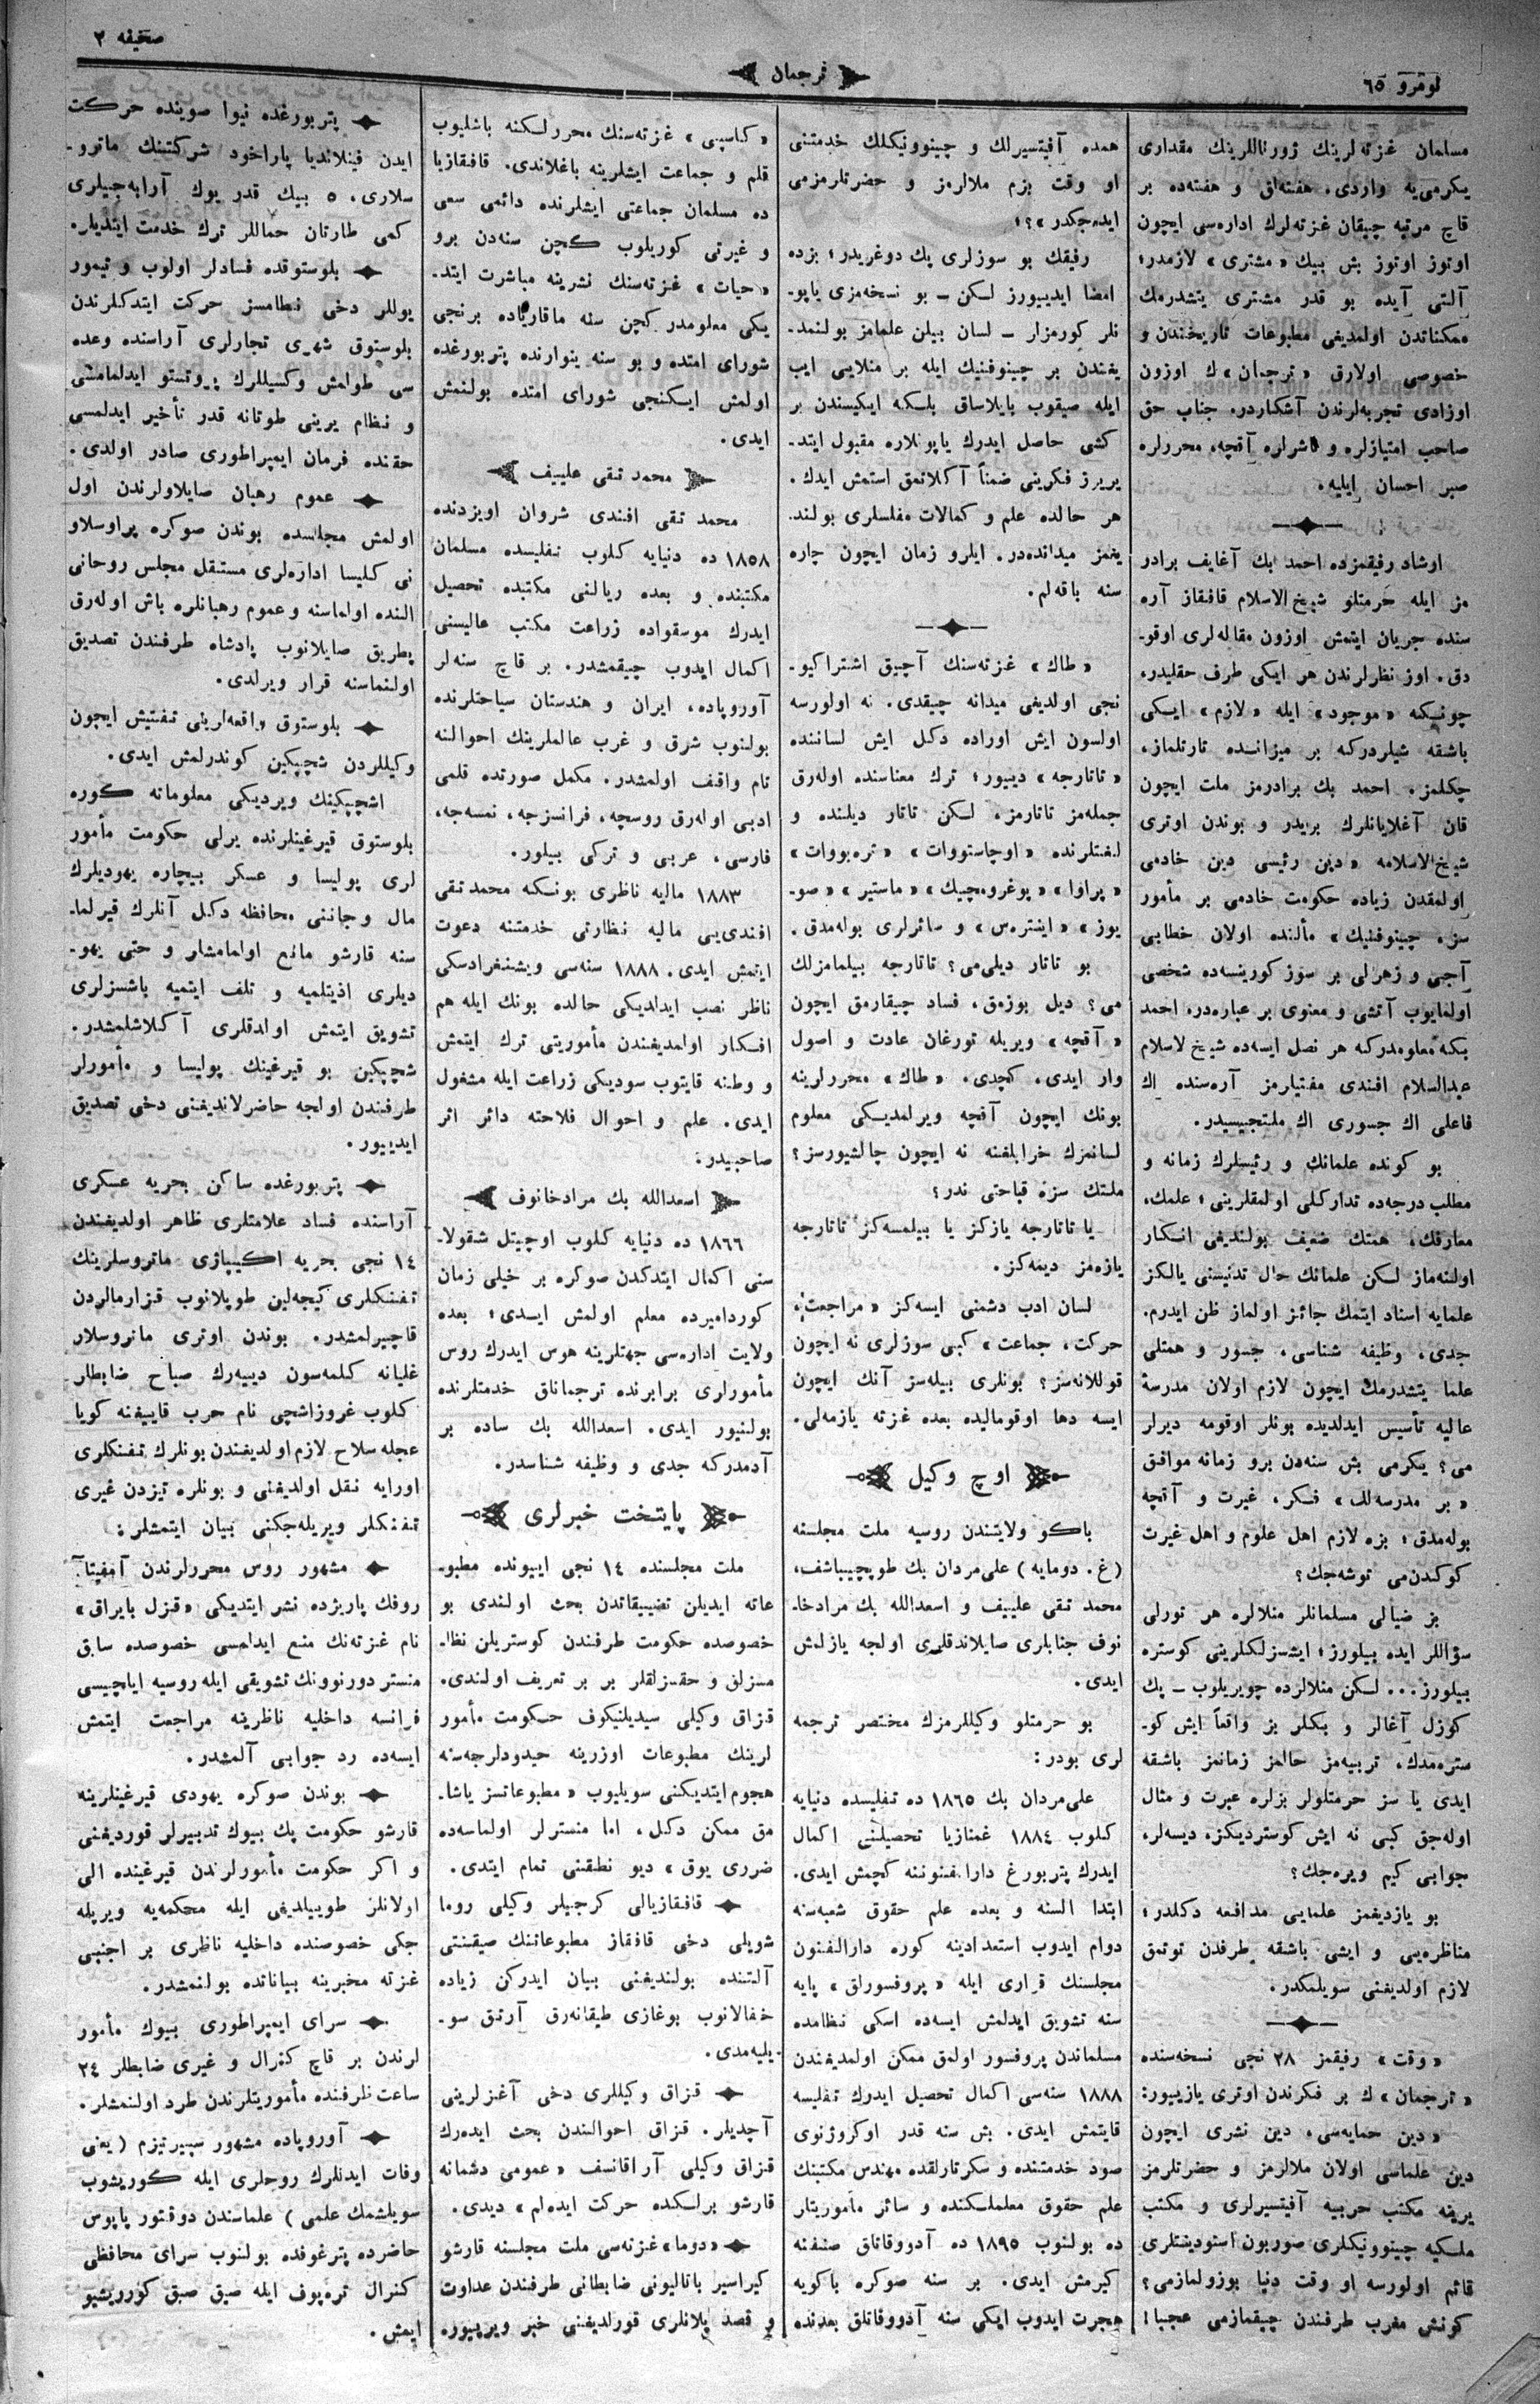 صحیفه ۲
ترجمان
نومرو ٦٥
مسلمان غزته‌لرینك ژورناللرینك مقداری
یكرمی‌یه واردی. هفته‌لق و هفته‌ده بر
قاچ مرتبه چیقان غزته‌لرك اداره‌سی ایچون
اوتوز اوتوز بش بیك «مشتری» لازمدر؛
آلتی آیده بو قدر مشتری یتشدرمك
ممكناتدن اولمدیغی مطبوعات تاریخندن و
خصوصی اولارق «ترجمان»ك اوزون
اوزادی تجربه‌لرندن آشكاردر. جناب حق
صاحب امتیازلره و ناشرلره آقچه، محررلره
صبر احسان ایلیه.
اوشاد رفیقمزده احمد بك آغایف برادر
مز ایله حرمتلو شیخ‌الاسلام قافقاز آره
سنده جریان ایتمش اوزون مقاله‌لری اوقو-
دق. اوز نظرلرندن هر ایكی طرف حقلیدر،
چونكه «موجود» ایله «لازم» ایكی
باشقه شیلردركه بر میزانده تارتلماز،
چكلمز. احمد بك برادرمز ملت ایچون
قان آغلایانلرك بریدر و بوندن اوتری
شیخ‌الاسلامه «دین رئیسی دین خادمی
اولمقدن زیاده حكومت خادمی بر مأمور
سز، چینوفنیك» مألنده اولان خطابی
آجی و زهرلی بر سوز كورینسه‌ده شخصی
اولمایوب آتشی و معنوی بر عباره‌در، احمد
بكه معلومدركه هر نصل ایسه‌ده شیخ لاسلام
عبدالسلام افندی مفتیلرمز آره‌سنده اك
فاعلی اك جسوری اك ملتجیسیدر.
بو كونده علمانك و رئیسلرك زمانه و
مطلب درجه‌ده تداركلی اولمقلرینی؛ علمك،
معارفك، همتك ضعیف بولندیغی انكار
اولنه‌ماز لكن علمانك حال تدنیسنی یالكز
علمایه اسناد ایتمك جائز اولماز ظن ایدرم.
جدی، وظیفه شناسی، جسور و همتلی
علما یتشدرمك ایچون لازم اولان مدرسهٔ
عالیه تأسیس ایدلدیده بونلر اوقومه دیرلر
می؟ یكرمی بش سنه‌دن برو زمانه موافق
«بر مدرسه‌لك» فكر، غیرت و آقچه
بوله‌مدق؛ بزه لازم اهل علوم و اهل غیرت
كوكدن‌می توشه‌جك؟
بز ضیالی مسلمانلر منلالره هر تورلی
سؤاللر ایده بیلورز؛ ایشسزلكلرینی كوستره
بیلورز... لكن منلالرده چویریلوب — پك
كوزل آغالر و بكلر بز واقعاً ایش كو-
ستره‌مدك، تربیه‌مز حالمز زمانمز باشقه
ایدی یا سز حرمتلولر بزلره عبرت و مثال
اوله‌جق كبی نه ایش كوستردیكز، دیسه‌لر،
جوابی كیم ویره‌جك؟
بو یازدیغمز علمایی مدافعه دكلدر؛
مناظره‌یی و ایشی باشقه طرفدن توتمق
لازم اولدیغنی سویلمكدر.
«وقت» رفیقمز ۲۸ نجی نسخه‌سنده
«ترجمان»ك بر فكرندن اوتری یازییور:
«دین حمایه‌سی، دین نشری ایچون
دین علماسی اولان ملالرمز و حضرتلرمز
یرینه مكتب حربیه آفیتسیرلری و مكتب
ملكیه چینوونیكلری صوربون استودینتلری
قائم اولورسه او وقت دنیا بوزولمازمی؟
كونش مغرب طرفندن چیقمازمی عجبا!
همده آفیتسیرلك و چینوونیكلك خدمتنی
او وقت بزم ملالرمز و حضرتلرمزمی
ایده‌جكدر»؟
رفیقك بو سوزلری پك دوغریدر؛ بزده
امضا ایدییورز لكن — بو نسخه‌مزی یاپو-
نلر كورمزلر — لسان بیلن علمامز بولنمد-
یغندن بر چینوفنیك ایله بر منلایی ایپ
ایله صیقوب بایلاساق بلكه ایكیسندن بر
كشی حاصل ایدرك یاپونلاره مقبول ایتد-
یریرز فكرینی ضمناً آكلاتمق استمش ایدك.
هر حالده علم و كمالات مفلسلری بولند-
یغمز میدانده‌در. ایلرو زمان ایچون چاره
سنه باقه‌لم.
«طاك» غزته‌سنك آچیق اشتراكیو-
نجی اولدیغی میدانه چیقدی. نه اولورسه
اولسون ایش اوراده دكل ایش لساننده
«تاتارجه» دییور؛ ترك معناسنده اوله‌رق
جمله‌مز تاتارمز، لكن تاتار دیلنده و
لغتلرنده «اوچاستووات» «تره‌بووات»
«پراوا» «بوغروه‌چیك» «ماستیر» «صو-
یوز» «اینتره‌س» و سائرلری بوله‌مدق.
بو تاتار دیلی‌می؟ تاتارجه بیلمامزلك
می؟ دیل بوزمق، فساد چیقارمق ایچون
«آقچه» ویریله تورغان عادت و اصول
وار ایدی، كچدی. «طاك» محررلرینه
بونك ایچون آقچه ویرلمدیكی معلوم
لسانمزك خرابلغنه نه ایچون چالشیورسز؟
ملتك سزه قباحتی ندر؟
یا تاتارجه یازكز یا بیلمسه‌كز تاتارجه
یازه‌مز دیمه‌كز.
لسان ادب دشمنی ایسه‌كز «مراجعت،
حركت، جماعت» كبی سوزلری نه ایچون
قوللانه‌سز؟ بونلری بیله‌سز آنك ایچون
ایسه دها اوقومالیده بعده غزته یازمه‌لی.
اوچ وكیل
باكو ولایتندن روسیه ملت مجلسنه
(غ. دومایه) علی‌مردان بك طوپچیباشف،
محمد تقی علییف و اسعدالله بك مرادخا-
نوف جنابلری صایلاندقلری اولجه یازلمش
ایدی.
بو حرمتلو وكیللرمزك مختصر ترجمه
لری بودر:
علی‌مردان بك ۱۸٦٥ ده تفلیسده دنیایه
كلوب ۱۸۸٤ غمنازیا تحصیلنی اكمال
ایدرك پتربورغ دارالفنوننه كچمش ایدی.
ابتدا السنه و بعده علم حقوق شعبه‌سنه
دوام ایدوب استعدادینه كوره دارالفنون
مجلسنك قراری ایله «پروفسورلق» پایه
سنه تشویق ایدلمش ایسه‌ده اسكی نظامده
مسلماندن پروفسور اولمق ممكن اولمدیغندن
۱۸۸۸ سنه‌سی اكمال تحصیل ایدرك تفلیسه
قایتمش ایدی. بش سنه قدر اوكروژنوی
صود خدمتنده و سكرتارلقده مهندس مكتبنك
علم حقوق معلملكنده و سائر مأموریتلر
ده بولنوب ۱۸۹٥ ده آدووقاتلق صنفنه
كیرمش ایدی. بر سنه صوكره باكویه
هجرت ایدوب ایكی سنه آدووقاتلق بعدنده
«كاسپی» غزته‌سنك محررلكنه باشلیوب
قلم و جماعت ایشلرینه باغلاندی. قافقازیا
ده مسلمان جماعتی ایشلرنده دائمی سعی
و غیرتی كوریلوب كچن سنه‌دن برو
«حیات» غزته‌سنك نشرینه مباشرت ایتد-
یكی معلومدر. كچن سنه ماقاریاده برنجی
شورای امتده و بو سنه ینوارنده پتربورغده
اولمش ایكنجی شورای امتده بولنمش
ایدی.
محمد تقی علییف
محمد تقی افندی شروان اویزدنده
۱۸٥۸ ده دنیایه كلوب تفلیسده مسلمان
مكتبنده و بعده ریالنی مكتبده تحصیل
ایدرك موسقواده زراعت مكتب عالیسنی
اكمال ایدوب چیقمشدر. بر قاچ سنه‌لر
آوروپاده، ایران و هندستان سیاحتلرنده
بولنوب شرق و غرب عالملرینك احوالنه
تام واقف اولمشدر. مكمل صورتده قلمی
ادبی اوله‌رق روسچه، فرانسزجه، نمسه‌جه،
فارسی، عربی و تركی بیلور.
۱۸۸۳ مالیه ناظری بونكه محمد تقی
افندی‌یی مالیه نظارتی خدمتنه دعوت
ایتمش ایدی. ۱۸۸۸ سنه‌سی ویشنغرادسكی
ناظر نصب ایدلدیكی حالده بونك ایله هم
افكار اولمدیغندن مأموریتی ترك ایتمش
و وطنه قایتوب سودیكی زراعت ایله مشغول
ایدی. علم و احوال فلاحته دائر اثر
صاحبیدر.
اسعدالله بك مرادخانوف
۱۸٦٦ ده دنیایه كلوب اوچیتل شقولا-
سنی اكمال ایتدكدن صوكره بر خیلی زمان
كوردامیرده معلم اولمش ایدی؛ بعده
ولایت اداره‌سی جهتلرینه هوس ایدرك روس
مأمورلری برابرنده ترجمانلق خدمتلرنده
بولنیور ایدی. اسعدالله بك ساده بر
آدمدركه جدی و وظیفه شناسدر.
پایتخت خبرلری
ملت مجلسنده ۱٤ نجی اییونده مطبو-
عاته ایدیلن تضییقاتدن بحث اولندی بو
خصوصده حكومت طرفندن كوستریلن نظا-
مسزلق و حقسزلقلر بر بر تعریف اولندی.
قزاق وكیلی سیدیلنیكوف حكومت مأمور
لرینك مطبوعات اوزرینه حیدودلرجه‌سنه
هجوم ایتدیكنی سویلیوب «مطبوعاتسز یاشا-
مق ممكن دكل، اما منسترلر اولماسه‌ده
ضرری یوق» دیو نطقنی تمام ایتدی.
قافقازیالی كرجیلر وكیلی روما
شویلی دخی قافقاز مطبوعاتنك صیقنتی
آلتنده بولندیغنی بیان ایدركن زیاده
خفالانوب بوغازی طیقانه‌رق آرتق سو-
یلیه‌مدی.
قزاق وكیللری دخی آغزلرینی
آچدیلر. قزاق احوالندن بحث ایده‌رك
قزاق وكیلی آراقانسف «عمومی دشمانه
قارشو برلكده حركت ایده‌لم» دیدی.
«دوما» غزته‌سی ملت مجلسنه قارشو
كیراسیر باتالیونی ضابطانی طرفندن عداوت
و قصد پلانلری قورلدیغنی خبر ویرییور.
پتربورغده نیوا صوینده حركت
ایدن فینلاندیا پاراخود شركتنك ماترو-
سلاری، ٥ بیك قدر یوك آرابه‌جیلری
كمی طارتان حماللر ترك خدمت ایتدیلر.
بلوستوقده فسادلر اولوب و تیمور
یوللر دخی نظامسز حركت ایتدكلرندن
بلوستوق شهری تجارلری آراسنده وعده
سی طولمش وكسیللرك پروتستو ایدلمامشی
و نظام یرینی طوتانه قدر تأخیر ایدلمسی
حقنده فرمان ایمپراطوری صادر اولدی.
عموم رهبان صایلاولرندن اول
اولمش مجلسده بوندن صوكره پراوسلاو
نی كلیسا اداره‌لری مستقل مجلس روحانی
النده اولماسنه و عموم رهبانلره باش اوله‌رق
پطریق صایلانوب پادشاه طرفندن تصدیق
اولنماسنه قرار ویرلدی.
بلوستوق واقعه‌لرینی تفتیش ایچون
وكیللردن شچیپكین كوندرلمش ایدی.
اشچیپكینك ویردیكی معلوماته كوره
بلوستوق قیرغینلرنده یرلی حكومت مأمور
لری پولیسا و عسكر بیچاره یهودیلرك
مال و جاننی محافظه دكل آنلرك قیرلما-
سنه قارشو مانع اولمامشلر و حتی یهو-
دیلری اذیتلمیه و تلف ایتمیه باشسزلری
تشویق ایتمش اولدقلری آكلاشلمشدر.
شچیپكین بو قیرغینك پولیسا و مأمورلر
طرفندن اولجه حاضرلاندیغنی دخی تصدیق
ایدییور.
پتربورغده ساكن بحریه عسكری
آراسنده فساد علامتلری ظاهر اولدیغندن
۱٤ نجی بحریه اكیپاژی ماتروسلرینك
تفنكلری كیجه‌لین طوپلانوب قزارمالردن
قاچیرلمشدر. بوندن اوتری ماتروسلار
غلیانه كلمه‌سون دییه‌رك صباح ضابطلر
كلوب غروزاشچی نام حرب قاییغنه كویا
عجله سلاح لازم اولدیغندن بونلرك تفنكلری
اورایه نقل اولدیغنی و بونلره تیزدن غیری
تفنكلر ویریله‌جكنی بیان ایتمشلر.
مشهور روس محررلرندن آمفیتا-
روفك پاریزده نشر ایتدیكی «قزل بایراق»
نام غزته‌نك منع ایدلمسی خصوصده سابق
منستر دورنوونك تشویقی ایله روسیه ایلچیسی
فرانسه داخلیه ناظرینه مراجعت ایتمش
ایسه‌ده رد جوابی آلمشدر.
بوندن صوكره یهودی قیرغینلرینه
قارشو حكومت پك بیوك تدبیرلر قوردیغنی
و اكر حكومت مأمورلرندن قیرغینده الی
اولانلر طوییلدیغی ایله محكمه‌یه ویریله
جكی خصوصنده داخلیه ناظری بر اجنبی
غزته مخبرینه بیاناتده بولنمشدر.
سرای ایمپراطوری بیوك مأمور
لرندن بر قاچ كنرال و غیری ضابطلر ۲٤
ساعت ظرفنده مأموریتلرندن طرد اولنمشلر.
آوروپاده مشهور سپیرتیزم (یعنی
وفات ایدنلرك روحلری ایله كوریشوب
سویلشمك علمی) علماسندن دوقتور پاپوس
حاضرده پترغوفده بولنوب سرای محافظی
كنرال تره‌پوف ایله صیق صیق كوریشیو
ایمش.